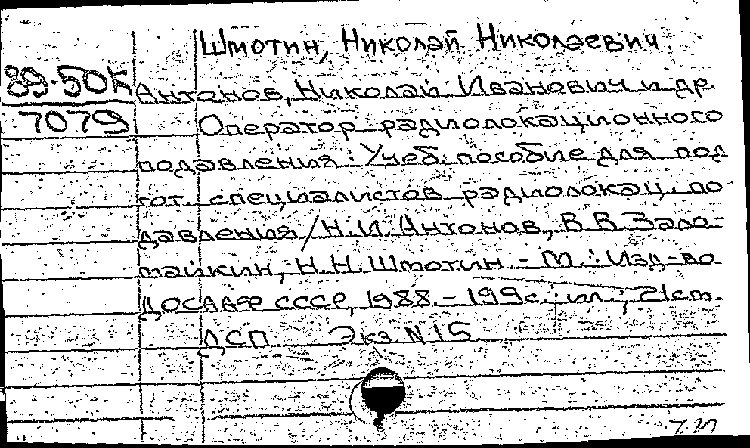 Шмотин, Николай Николаевич
89-50К Антонов, Николай Иванович и др
7079 Оператор радиолокационного
подавления: Учеб. пособие для под
гот. специалистов радиолокац. по
давления / Н.И. Антонов, В.В. Золо-
тайкин, Н.Н. Шмотин. - М.: Изд-во
ДОСААФ СССР, 1988. - 199с.: ил.; 21см.
ДСП Экз N 15